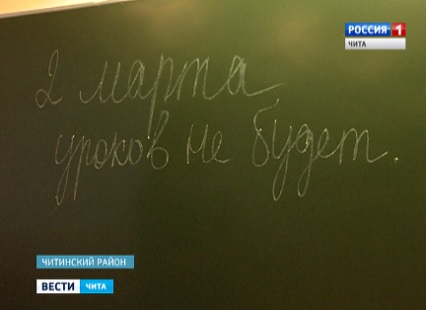 РОССИЯ 1
ЧИТА
2 марта
уроков не будет.
ЧИТИНСКИЙ РАЙОН
ВЕСТИ ЧИТА